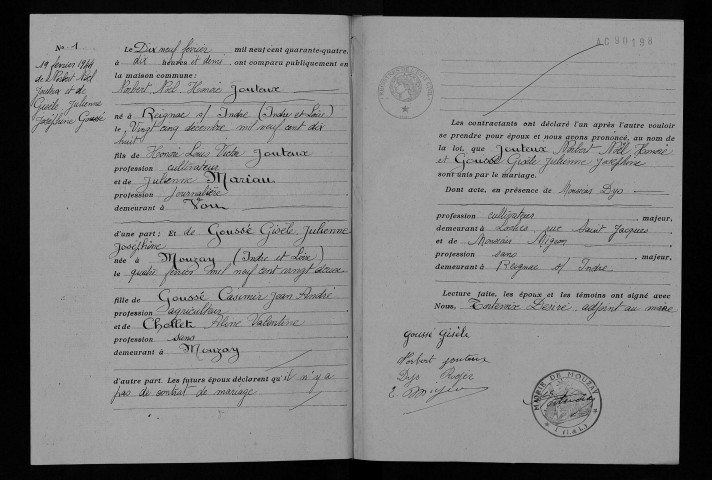 No 1
19 février 1944
de Norbert Noël
Joutaux et de
Gisèle Julienne
Joséphine Goussé
Le Dix neuf février mil neuf cent quarante-quatre,
à dix heures et demi, ont comparu publiquement en
la maison commune:
Norbert Noël Honoré Joutaux
né à Reignac s/ Indre (Indre et Loire)
le Vingt cinq décembre mil neuf cent dix
huit
fils de Honoré Louis Victor Joutaux
profession cultivateur
et de Julienne Mariau
profession journalière
demeurant à Vou
d'une part; Et de Goussé Gisèle Julienne
Joséphine
née à Mouzay (Indre et Loire)
le quatre février mil neuf cent vingt deux
fille de Goussé Casimir Jean André
profession agriculteur
et de Chollet Aline Valentine
profession sans
demeurant à Mouzay
d'autre part. Les futurs époux déclarent qu'il n'y a
pas de contrat de mariage
AC 90198
Les contractants ont déclaré l'un après l'autre vouloir
se prendre pour époux et nous avons prononcé, au nom de
la loi, que Joutaux Norbert Noël Honoré
et Goussé Gisèle Julienne Joséphine
sont unis par le mariage.
Dont acte, en présence de Monsieur Dys
profession cultivateur, majeur,
demeurant à Loches rue Saint Jacques
et de Monsieur Mignon
profession sans, majeur,
demeurant à Reignac s/ Indre
Lecture faite, les époux et les témoins ont signé avec
Nous, Désiré, adjoint au maire
Goussé Gisèle
Norbert Joutaux
Dys Roger
MAIRIE DE MOUZAY
(I.&L.)